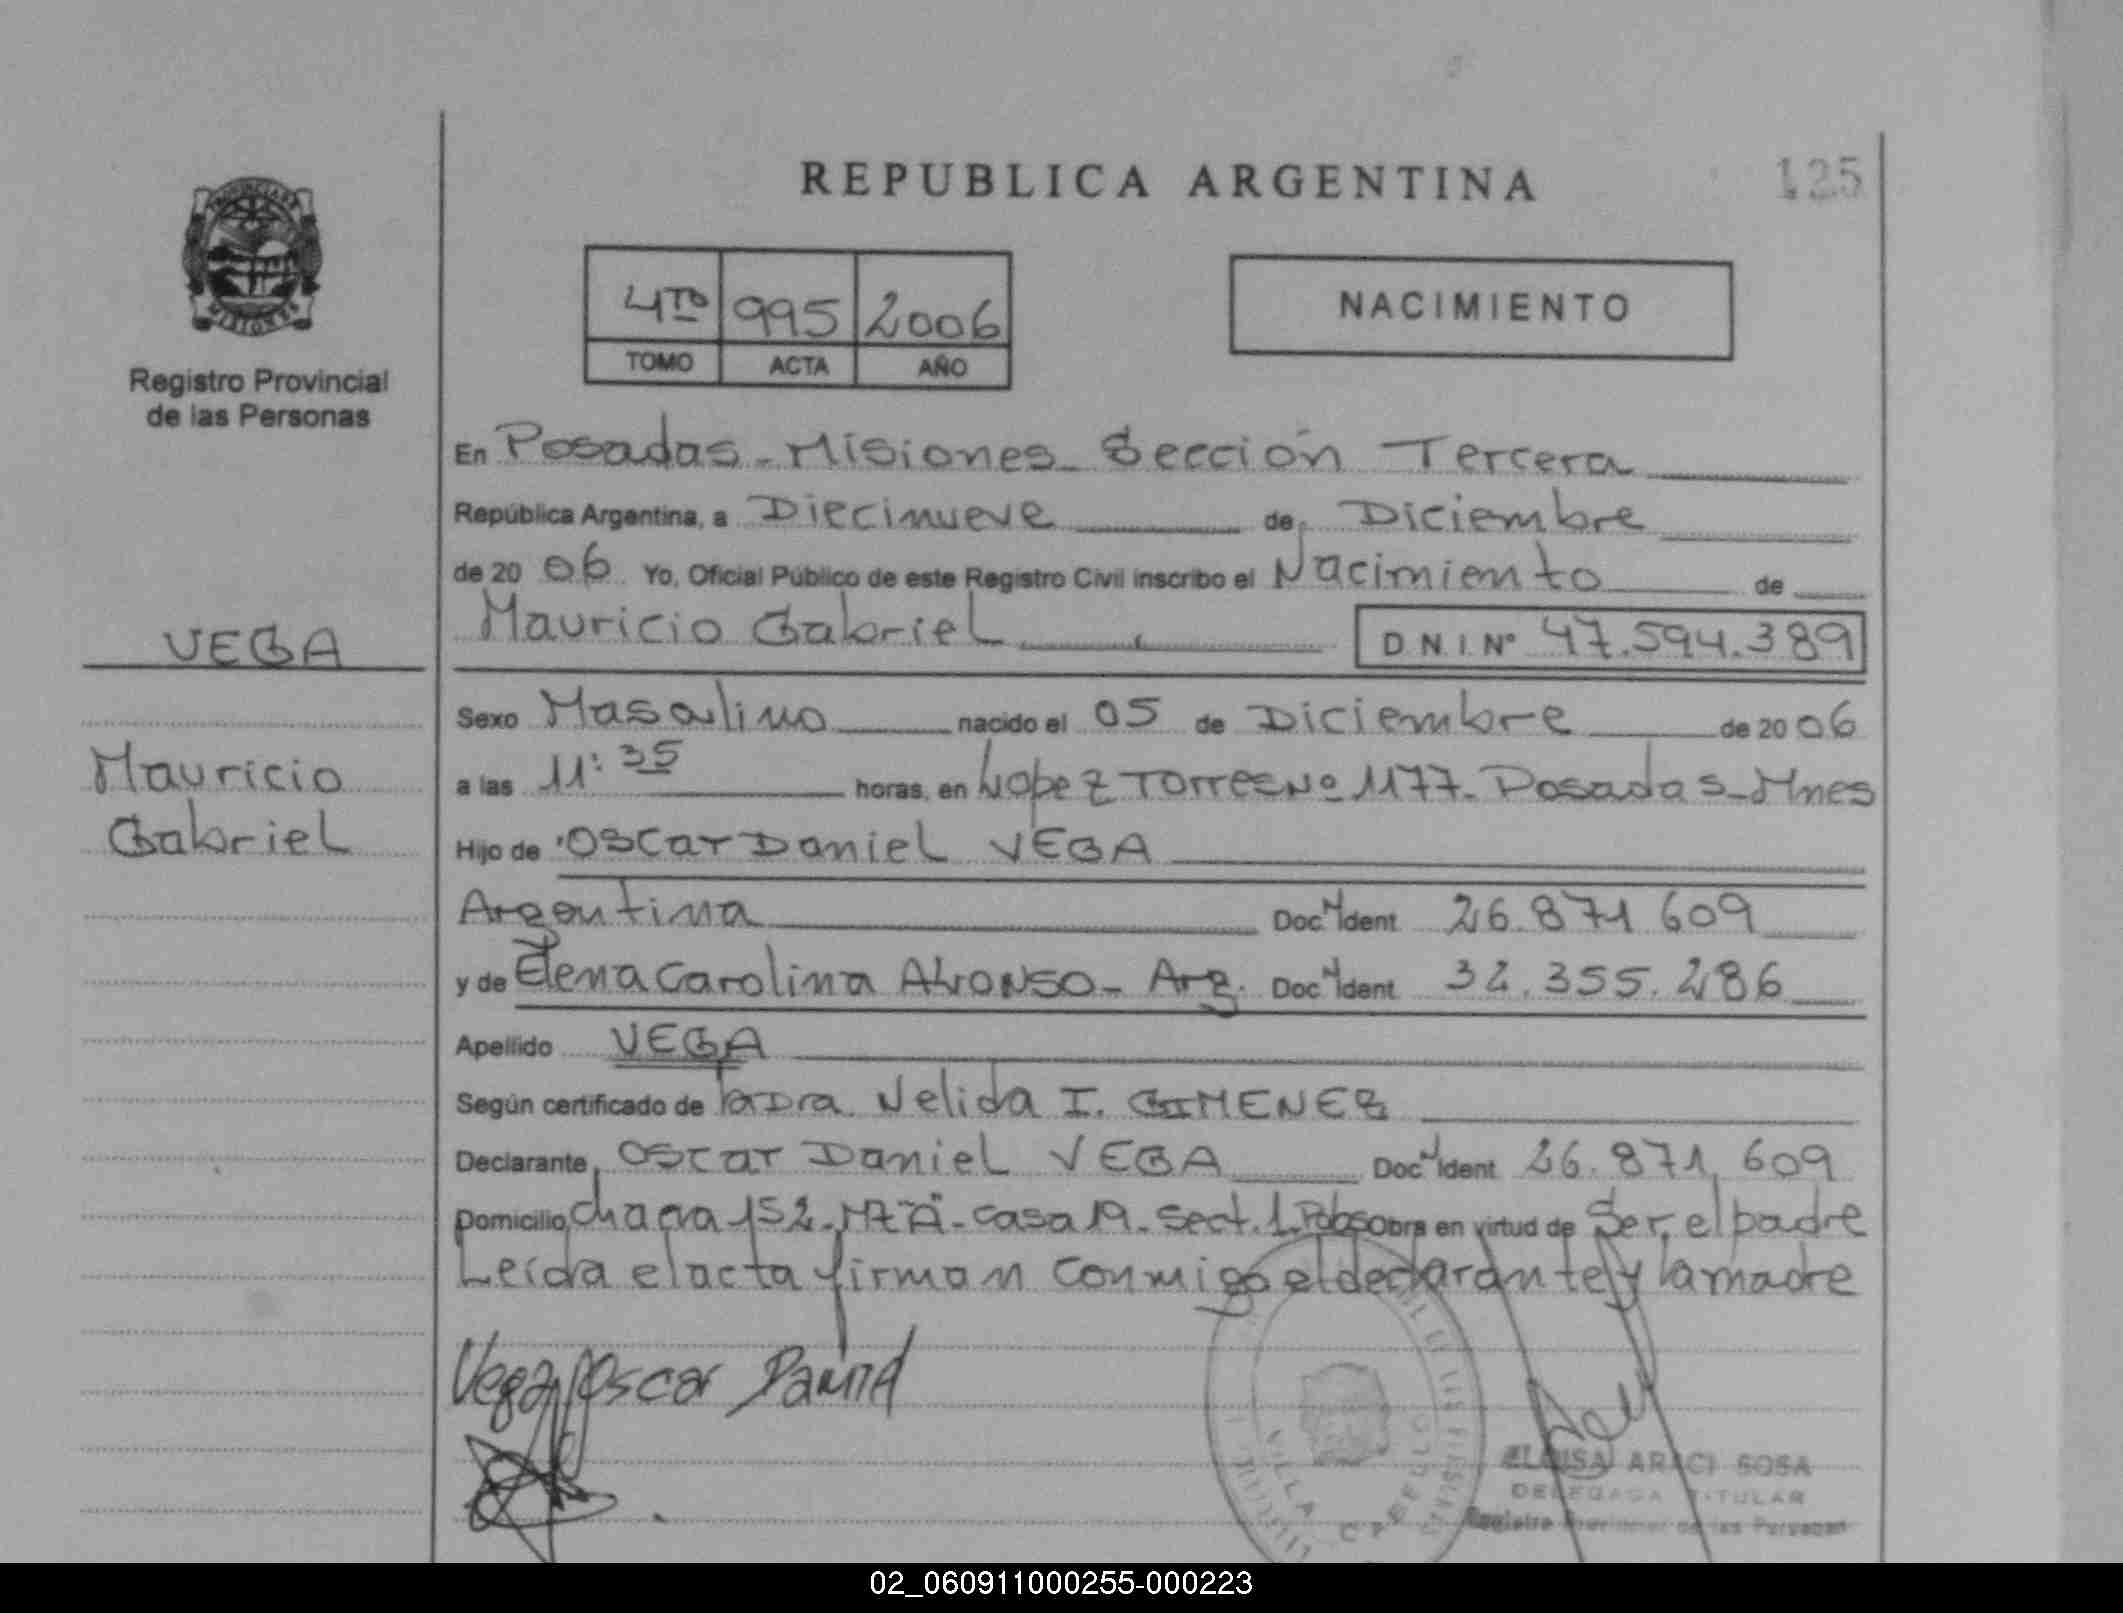 REPUBLICA ARGENTINA
125
PROVINCIA DE
MISIONES
Registro Provincial
de las Personas
4TO 995 2006
TOMO ACTA AÑO
NACIMIENTO
En Posadas - Misiones - Sección Tercera
República Argentina, a Diecinueve de Diciembre
de 2006 Yo, Oficial Público de este Registro Civil inscribo el Nacimiento de
Mauricio Gabriel D N . I . Nº 47.594.389
VEGA
Mauricio
Gabriel
Sexo Masculino nacido el 05 de Diciembre de 2006
a las 11:35 horas, en Lopez Torres Nº 1177 - Posadas - Mnes
Hijo de Oscar Daniel VEGA
Argentina Doc N Ident 26.871.609
y de Elena Carolina ALONSO - Arg. Doc N Ident 32.355.286
Apellido VEGA
Según certificado de la Dra. Nelida I. GIMENEZ
Declarante Oscar Daniel VEGA Doc N Ident 26.871.609
Domicilio chacra 152 - Mz "A" - casa 19 - Sect. 1 - Pdas Obra en virtud de Ser el padre
Leída el acta firman conmigo el declarante y la madre
Vega Oscar Daniel
VILLA CABELLO
ELOISA ARACI SOSA
DELEGADA TITULAR
Registro Provincial de las Personas
02_060911000255-000223